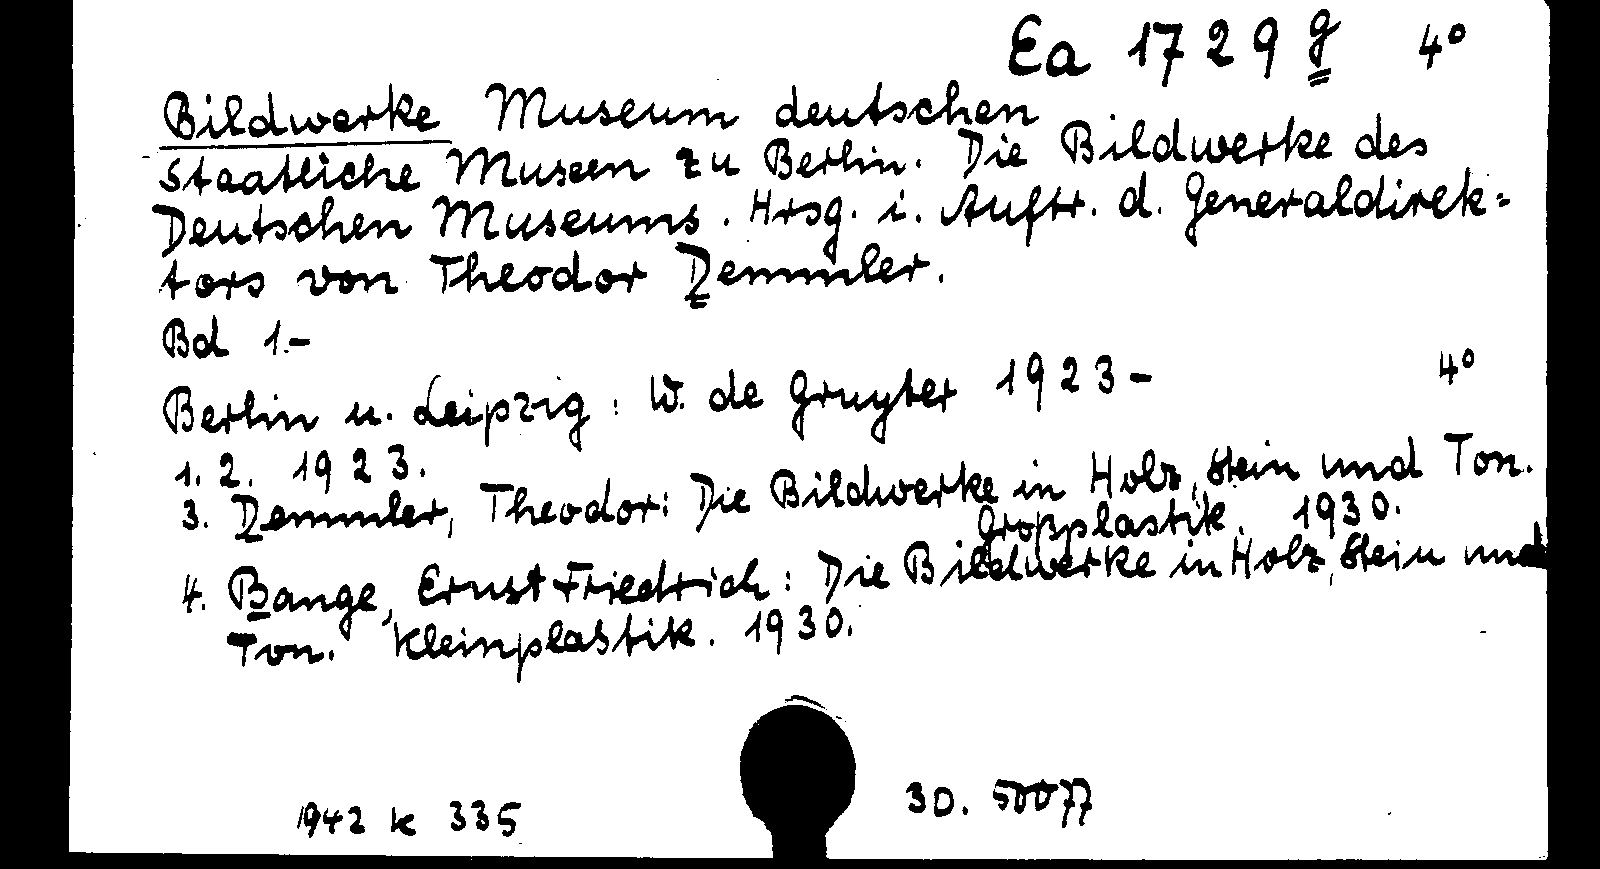 Ea 1729 g 4°
Bildwerke Museum deutschen
Staatliche Museen zu Berlin. Die Bildwerke des
Deutschen Museums. Hrsg. i. Auftr. d. Generaldirek=
tors von Theodor Demmler.
Bd 1.-
Berlin u. Leipzig: W. de Gruyter 1923- 4°
1. 2. 1923.
3. Demmler, Theodor: Die Bildwerke in Holz, Stein und Ton.
Großplastik. 1930.
4. Bange, Ernst Friedrich: Die Bildwerke in Holz, Stein und
Ton. Kleinplastik. 1930.
1942 K 335 30. 50077